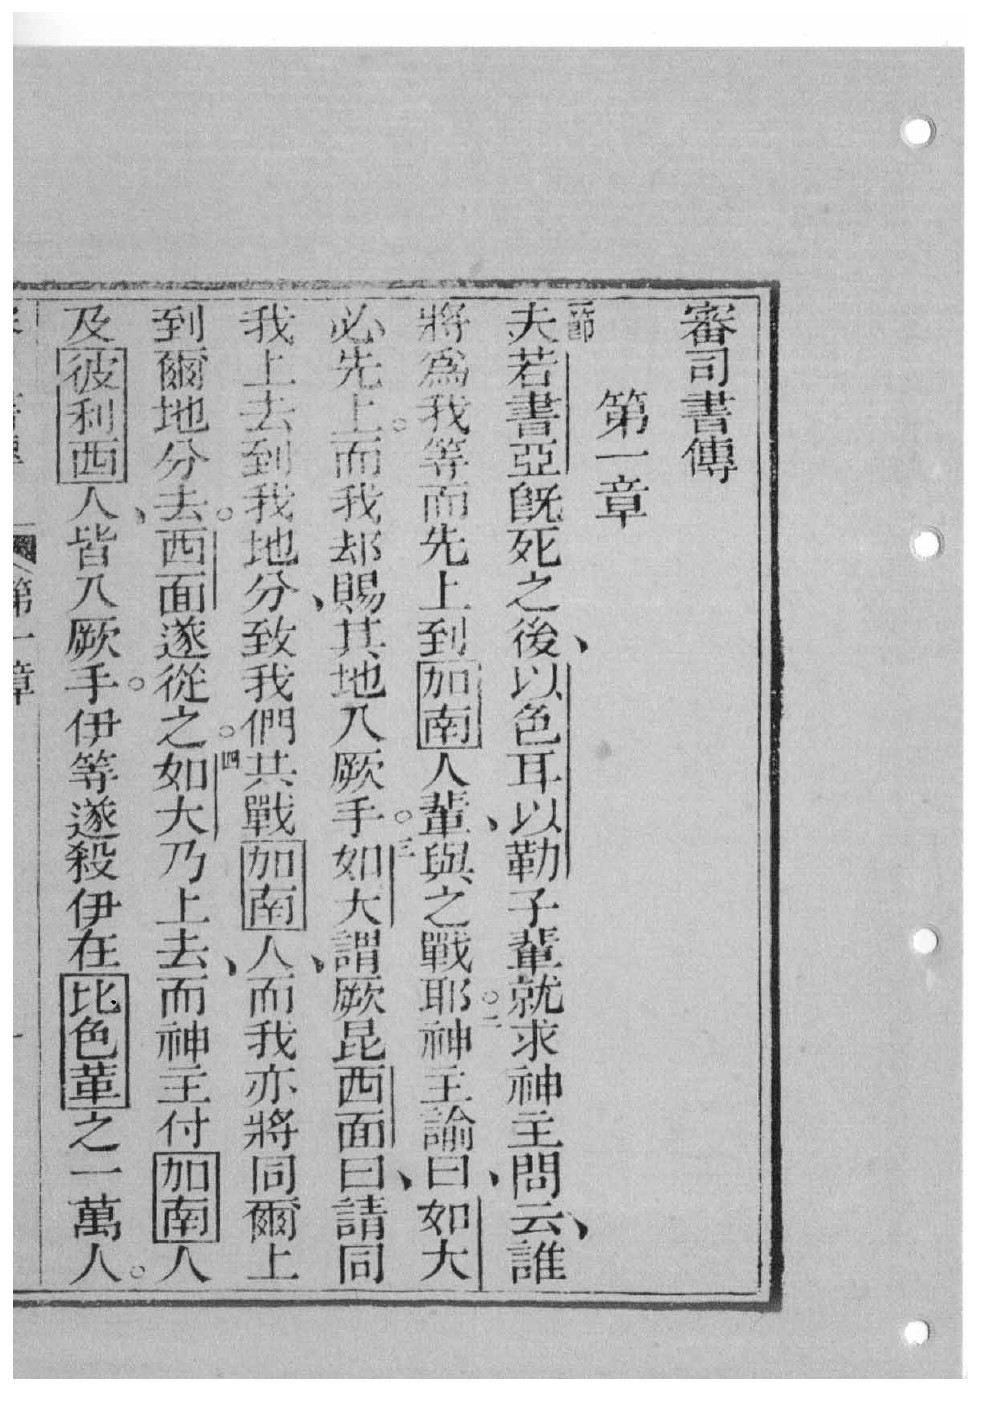 審司書傳
第一章
一節 夫若書亞旣死之後、以色耳以勒子輩就求神主問云、誰
將爲我等而先上到加南人輩、與之戰。二耶神主諭曰、如大
必先上。而我却賜其地入厥手。三如大謂厥昆西面曰、請同
我上去到我地分、致我們共戰加南人、而我亦將同爾上
到爾地分去。西面遂從之。四如大乃上去、而神主付加南人
及彼利西人、皆入厥手。伊等遂殺伊在比色革之一萬人。
第一章